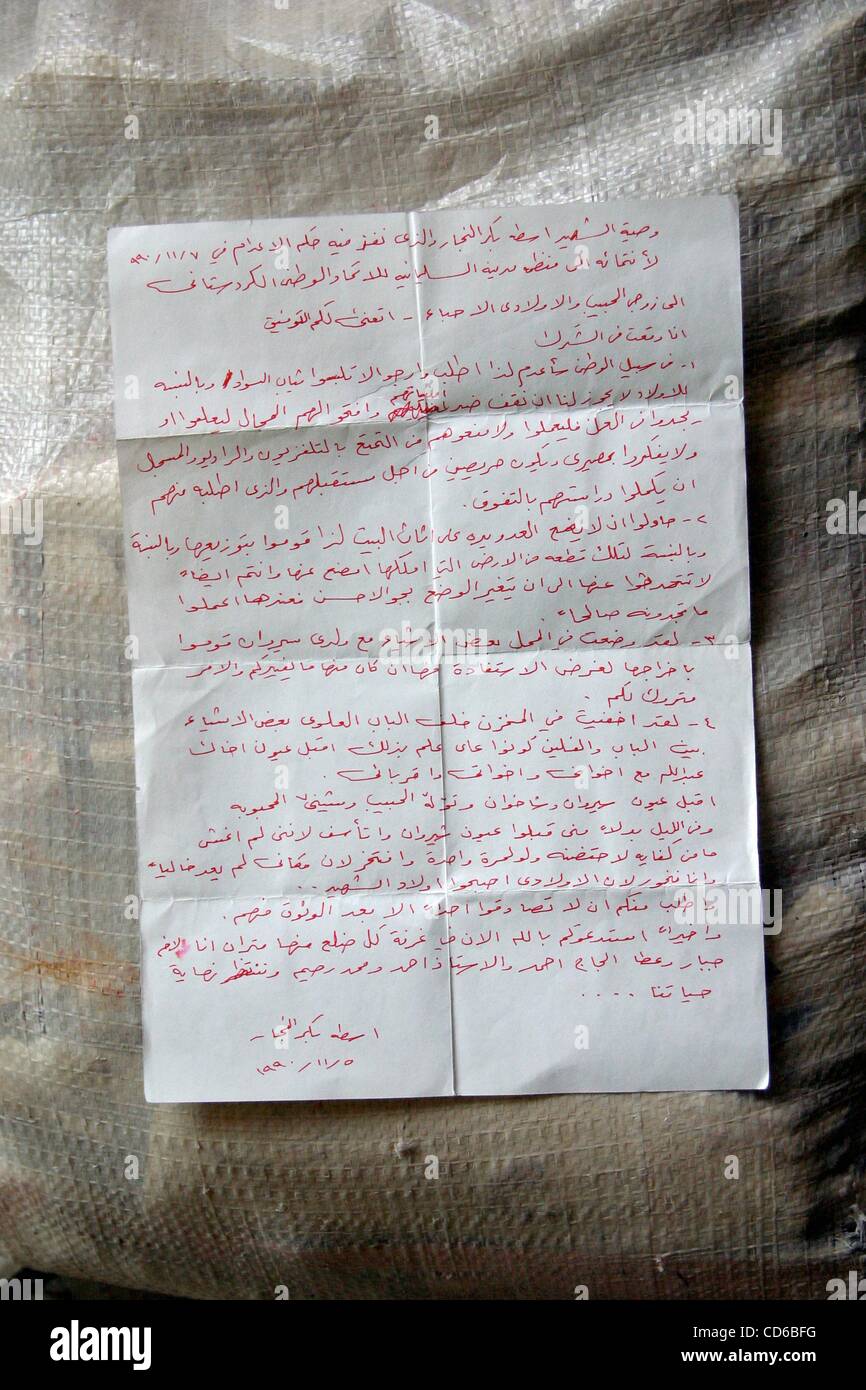 وصية الشهيد اسطه بكر النجار والذي نفذ فيه حكم الاعدام في ٩٩٠/١١/٧
لأنتمائه الى منظمة مدينة السليمانيه للاتحاد الوطني الكردستاني
الى زوجي الحبيب والاولادي الاحباء - اتمنى لكم التوفيق
انا وقعت في الشرك
١- في سبيل الوطن سأعدم لذا اطلب وارجو الا تلبسوا ثياب السواد وبالنسبة
للاولاد لا يجوز لنا ان نقف ضد امنياتهم وافتحوا لهم المجال ليعلموا او
يجدوا العمل فليعملوا ولا تمنعوهم من التمتع بالتلفزيون والراديو والمسجل
ولا يفكروا بمصيري ويكون حريصين من اجل مستقبلهم والذي اطلبه منهم
ان يكملوا دراستهم بالتفوق .
٢- حاولوا ان لا يضع العدو يده على اثاث البيت لذا قوموا بتوزيعها وبالنسبة
وبالنسبة لتلك قطعه من الارض التي املكها عنها وانتم ايضاً
لا تتحدثوا عنها الى ان يتغير الوضع نحو الاحسن فعندها اعملوا
ما تجدونه صالحاً .
٣- لقد وضعت في المحل بعض الاشياء مع ولدي سيروان قوموا
باخراجها لغرض الاستفادة منها ان كان منها ما يفيدكم والامر
متروك لكم .
٤- لقد اخفيت في المخزن خلف الباب العلوي بعض الاشياء
بين الباب والفلين كونوا على علم بذلك اقبل عيون اخاك
عبدالله مع اخواني و اخواتي و اقربائي .
اقبل عيون سيروان وشاخوان وتوله الحبيب المحبوبه
وفي الليل بدلاً مني قبلوا عيون شيروان وأتأسف لانني لم اعش
ما من كفايه لاحتضنه ولو لمرة واحدة وافتخر لان مكاني لم يعد خالياً
وانا فخور لان الاولادي اصبحوا اولاد الشهيد ..
واطلب منكم ان لا تصادقوا احداً الا بعد الوثوق منهم .
واخيراً استودعكم بالله الان في غرفة كل ضلع منها متران انا
جبار وعطا الحاج احمد والاستاذ احمد ومحمد رحيم وننتظر نهاية
حياتنا ....
اسطه بكر النجار
١٩٩٠/١١/٥
alamy
Image ID: CD6BFG
www.alamy.com